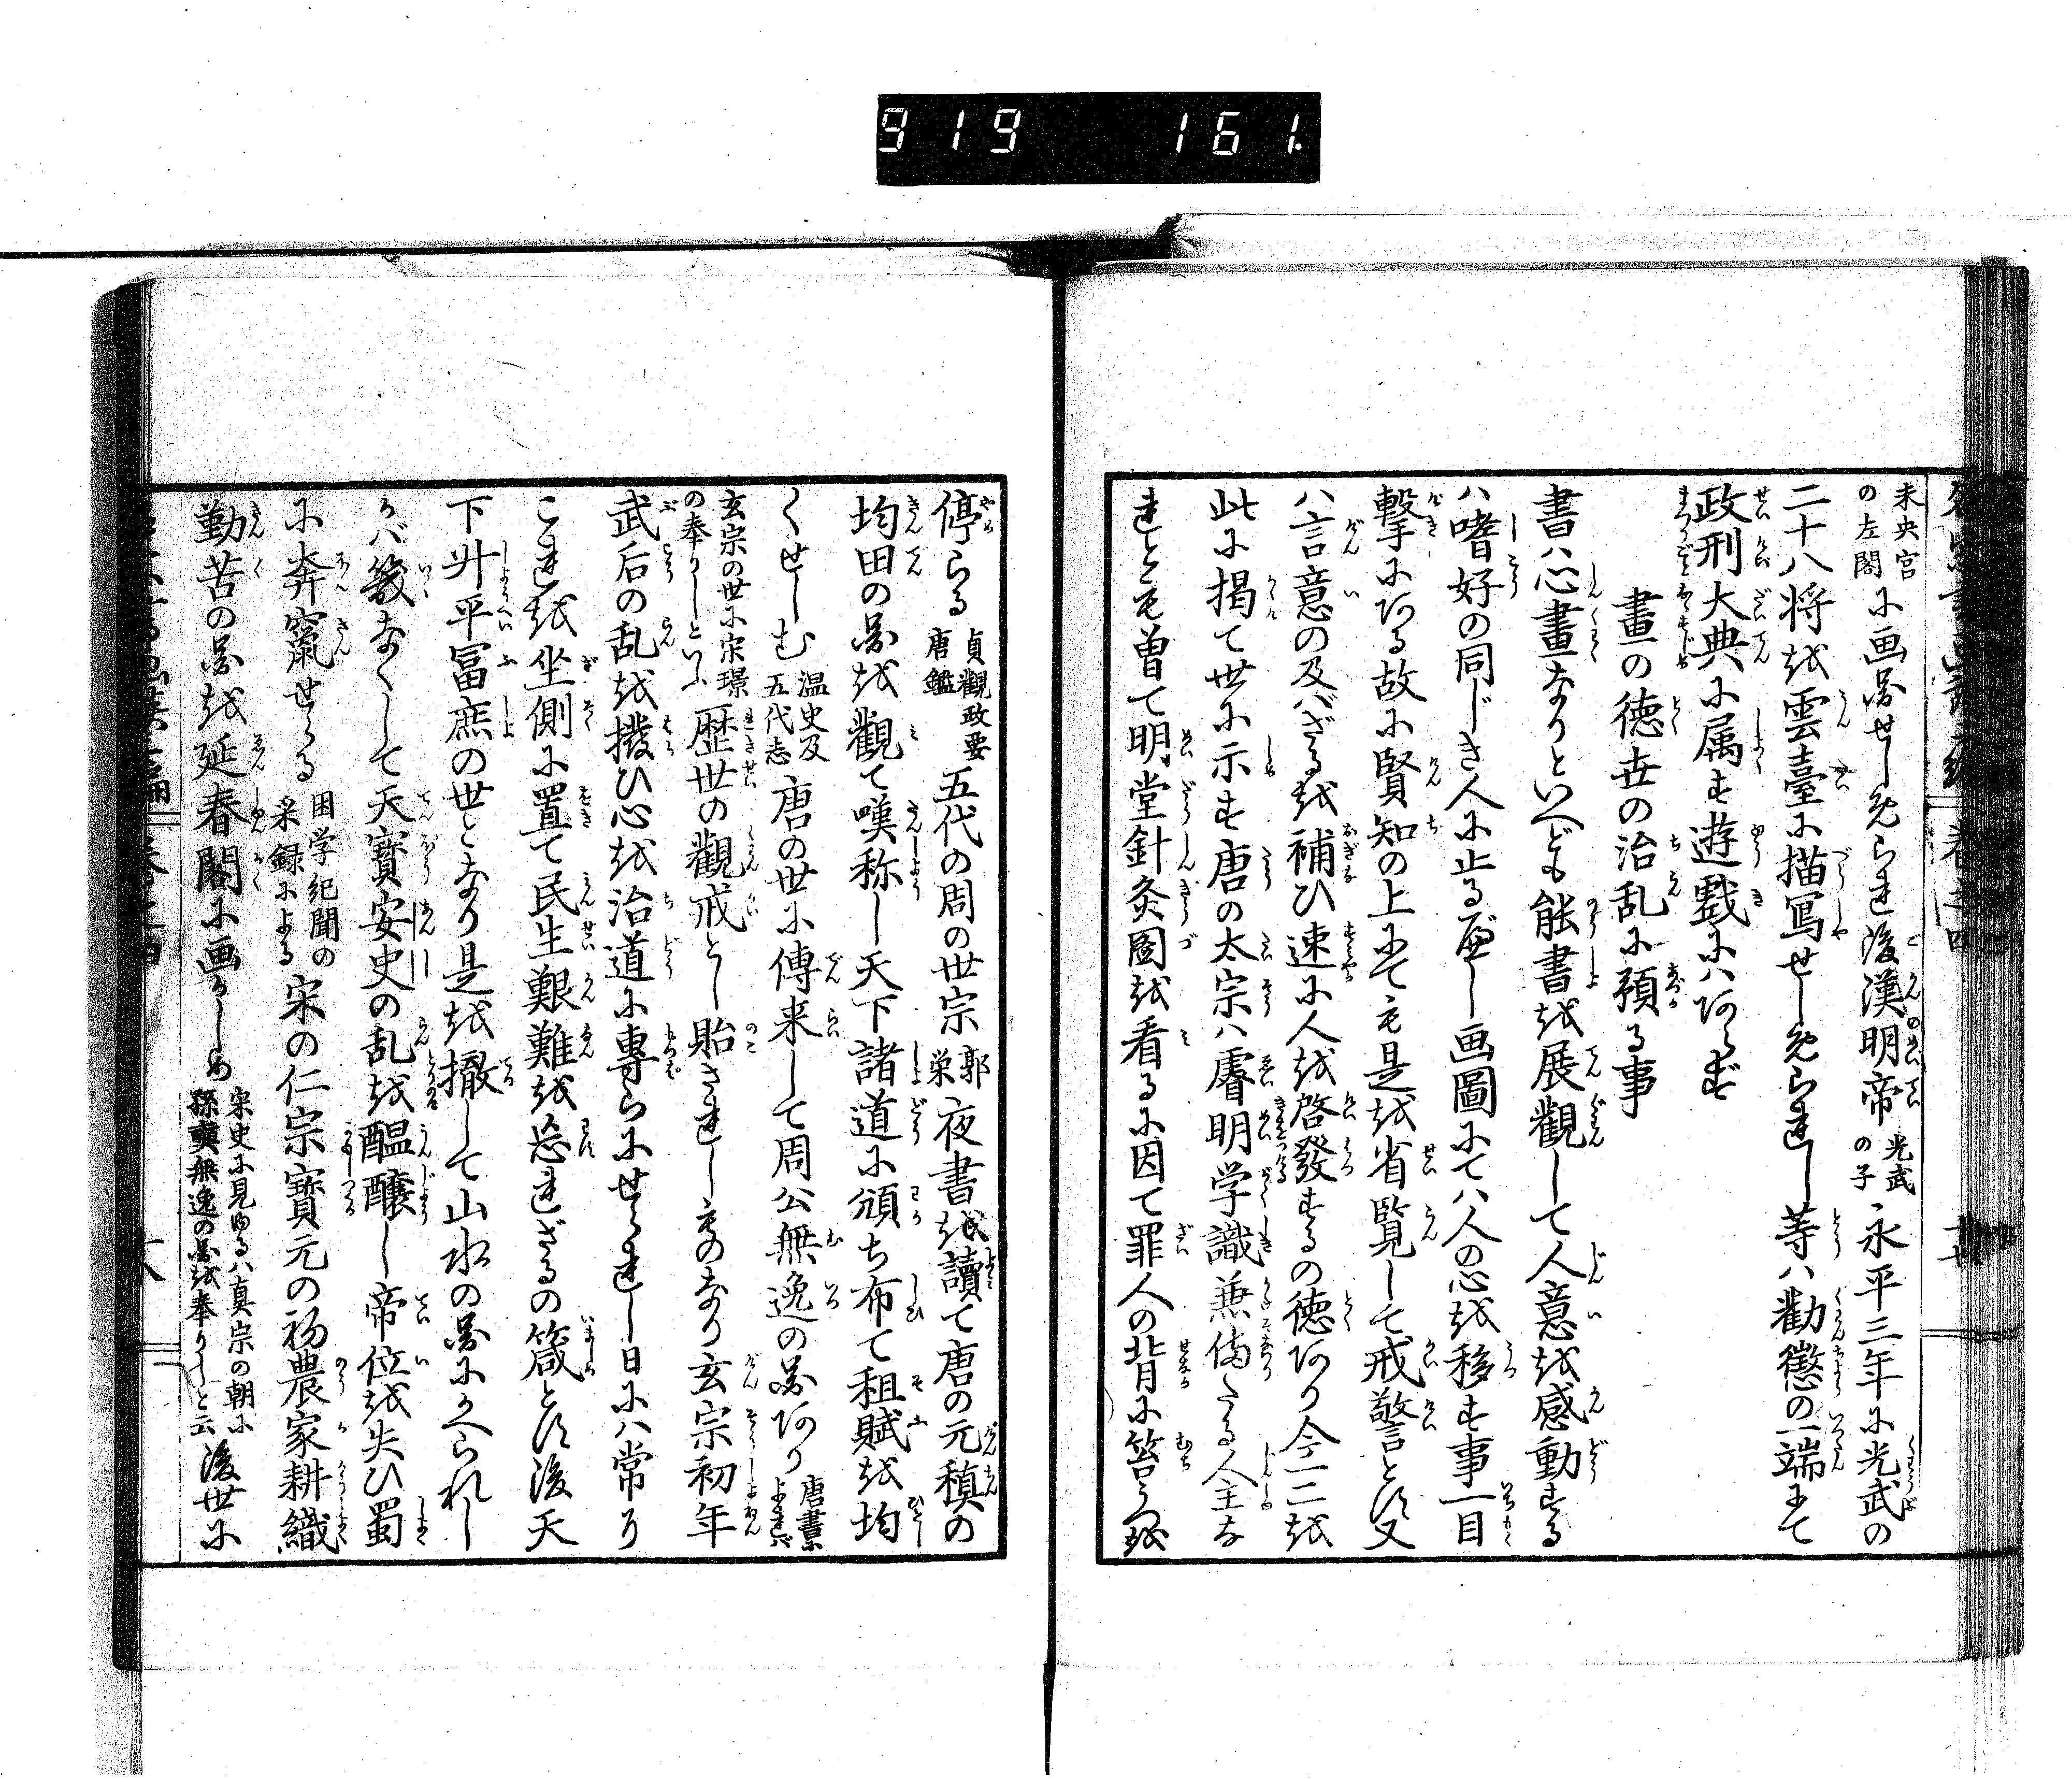 919 161.
未央宮の左閣に画图せしめられ後漢明帝光武の子永平三年に光武の
二十八将を雲臺に描寫せしめられし等ハ勸懲の一端にて
政刑大典に属す遊戯にハあらず
畫の徳世の治乱に預る事
書ハ心畫なりといへども能書を展觀して人意を感動する
ハ嗜好の同じき人に止る而し画圖にてハ人の心を移す事一目
撃にある故に賢知の上にても是を省覧して戒警とす又
ハ言意の及バざるを補ひ速に人を啓發するの徳あり今一二を
此に掲て世に示す唐の太宗ハ睿明学識兼備たる人主な
れども曽て明堂針灸圖を看るに因て罪人の背に笞うつを
停らる貞觀政要唐鑑五代の周の世宗郭栄夜書を讀て唐の元稹の
均田の图を觀て嘆称し天下諸道に頒ち布て租賦を均
くせしむ温史及五代志唐の世に傳来して周公無逸の图あり唐書によれば
玄宗の世に宋璟の奉りしといふ歴世の觀戒とし貽されしものなり玄宗初年
武后の乱を撥ひ心を治道に專らにせられし日にハ常に
これを坐側に置て民生艱難を忘れざるの箴とす後天
下升平冨庶の世となり是を撤して山水の图にかへられし
かバ幾なくして天寳安史の乱を醞釀し帝位を失ひ蜀
に奔竄せらる困学紀聞の采録による宋の仁宗寳元の初農家耕織
勤苦の图を延春閣に画かしめ宋史に見ゆるハ真宗の朝に孫奭無逸の图を奉りしと云後世に